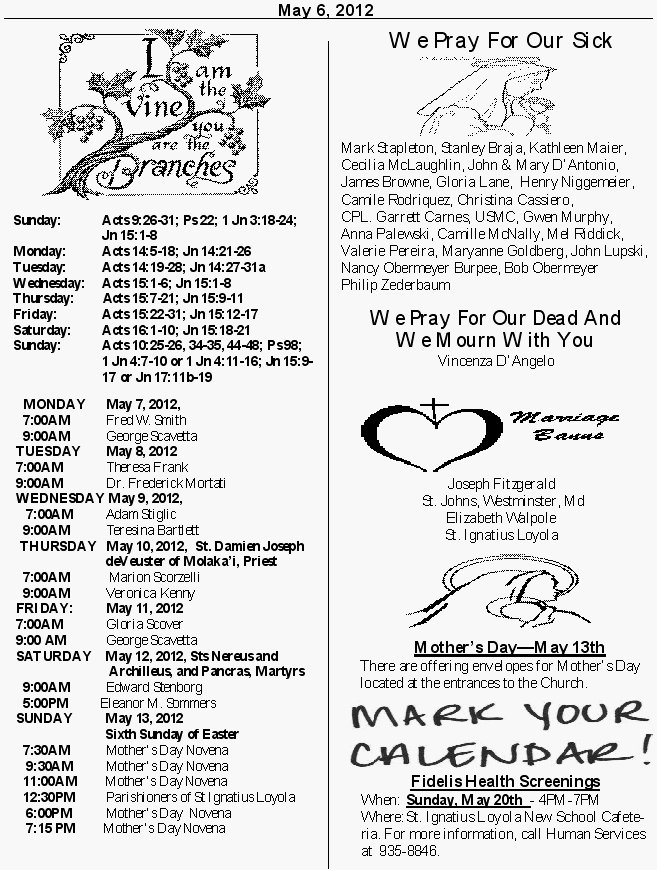 May 6, 2012
I am
the
Vine
you
are the
Branches
Sunday: Acts 9:26-31; Ps 22; 1 Jn 3:18-24;
Jn 15:1-8
Monday: Acts 14:5-18; Jn 14:21-26
Tuesday: Acts 14:19-28; Jn 14:27-31a
Wednesday: Acts 15:1-6; Jn 15:1-8
Thursday: Acts 15:7-21; Jn 15:9-11
Friday: Acts 15:22-31; Jn 15:12-17
Saturday: Acts 16:1-10; Jn 15:18-21
Sunday: Acts 10:25-26, 34-35, 44-48; Ps98;
1 Jn 4:7-10 or 1 Jn 4:11-16; Jn 15:9-
17 or Jn 17:11b-19
MONDAY May 7, 2012,
7:00AM Fred W. Smith
9:00AM George Scavetta
TUESDAY May 8, 2012
7:00AM Theresa Frank
9:00AM Dr. Frederick Mortati
WEDNESDAY May 9, 2012,
7:00AM Adam Stiglic
9:00AM Teresina Bartlett
THURSDAY May 10, 2012, St. Damien Joseph
deVeuster of Molaka'i, Priest
7:00AM Marion Scorzelli
9:00AM Veronica Kenny
FRIDAY: May 11, 2012
7:00AM Gloria Scover
9:00 AM George Scavetta
SATURDAY May 12, 2012, Sts Nereus and
Archilleus, and Pancras, Martyrs
9:00AM Edward Stenborg
5:00PM Eleanor M. Sommers
SUNDAY May 13, 2012
Sixth Sunday of Easter
7:30AM Mother's Day Novena
9:30AM Mother's Day Novena
11:00AM Mother's Day Novena
12:30PM Parishioners of St Ignatius Loyola
6:00PM Mother's Day Novena
7:15 PM Mother's Day Novena
We Pray For Our Sick
Mark Stapleton, Stanley Braja, Kathleen Maier,
Cecilia McLaughlin, John & Mary D'Antonio,
James Browne, Gloria Lane, Henry Niggemeier,
Camile Rodriquez, Christina Cassiero,
CPL. Garrett Carnes, USMC, Gwen Murphy,
Anna Palewski, Camille McNally, Mel Riddick,
Valerie Pereira, Maryanne Goldberg, John Lupski,
Nancy Obermeyer Burpee, Bob Obermeyer
Philip Zederbaum
We Pray For Our Dead And
We Mourn With You
Vincenza D'Angelo
Marriage
Banns
Joseph Fitzgerald
St. Johns, Westminster, Md
Elizabeth Walpole
St. Ignatius Loyola
Mother's Day—May 13th
There are offering envelopes for Mother's Day
located at the entrances to the Church.
MARK YOUR
CALENDAR!
Fidelis Health Screenings
When: Sunday, May 20th - 4PM-7PM
Where: St. Ignatius Loyola New School Cafete-
ria. For more information, call Human Services
at 935-8846.